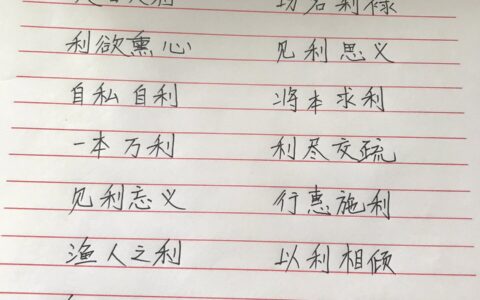 功名利禄
利欲熏心 见利思义
自私自利 将本求利
一本万利 利尽交疏
见利忘义 行惠施利
渔人之利 以利相倾